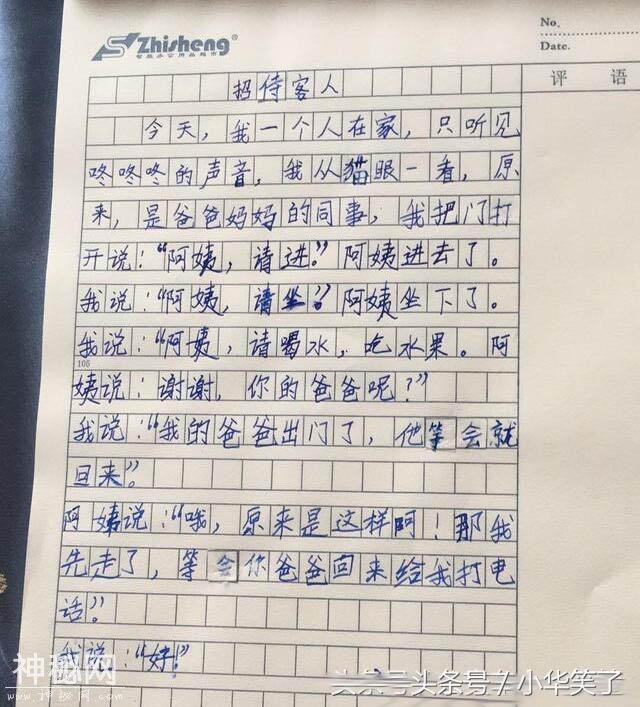 Zhisheng®
No.
Date.
评 语
招待客人
今天，我一个人在家，只听见
咚咚咚的声音，我从猫眼一看，原
来，是爸爸妈妈的同事，我把门打
开说：“阿姨，请进。”阿姨进去了。
我说：“阿姨，请坐”。阿姨坐下了。
我说：“阿姨，请喝水，吃水果。阿
105
姨说：谢谢，你的爸爸呢？”
我说：“我的爸爸出门了，他等会就
回来”。
阿姨说：“哦，原来是这样阿！那我
先走了，等会你爸爸回来给我打电
话”。
我说：“好！”
神秘网
头条号 头条号 / 小华笑了